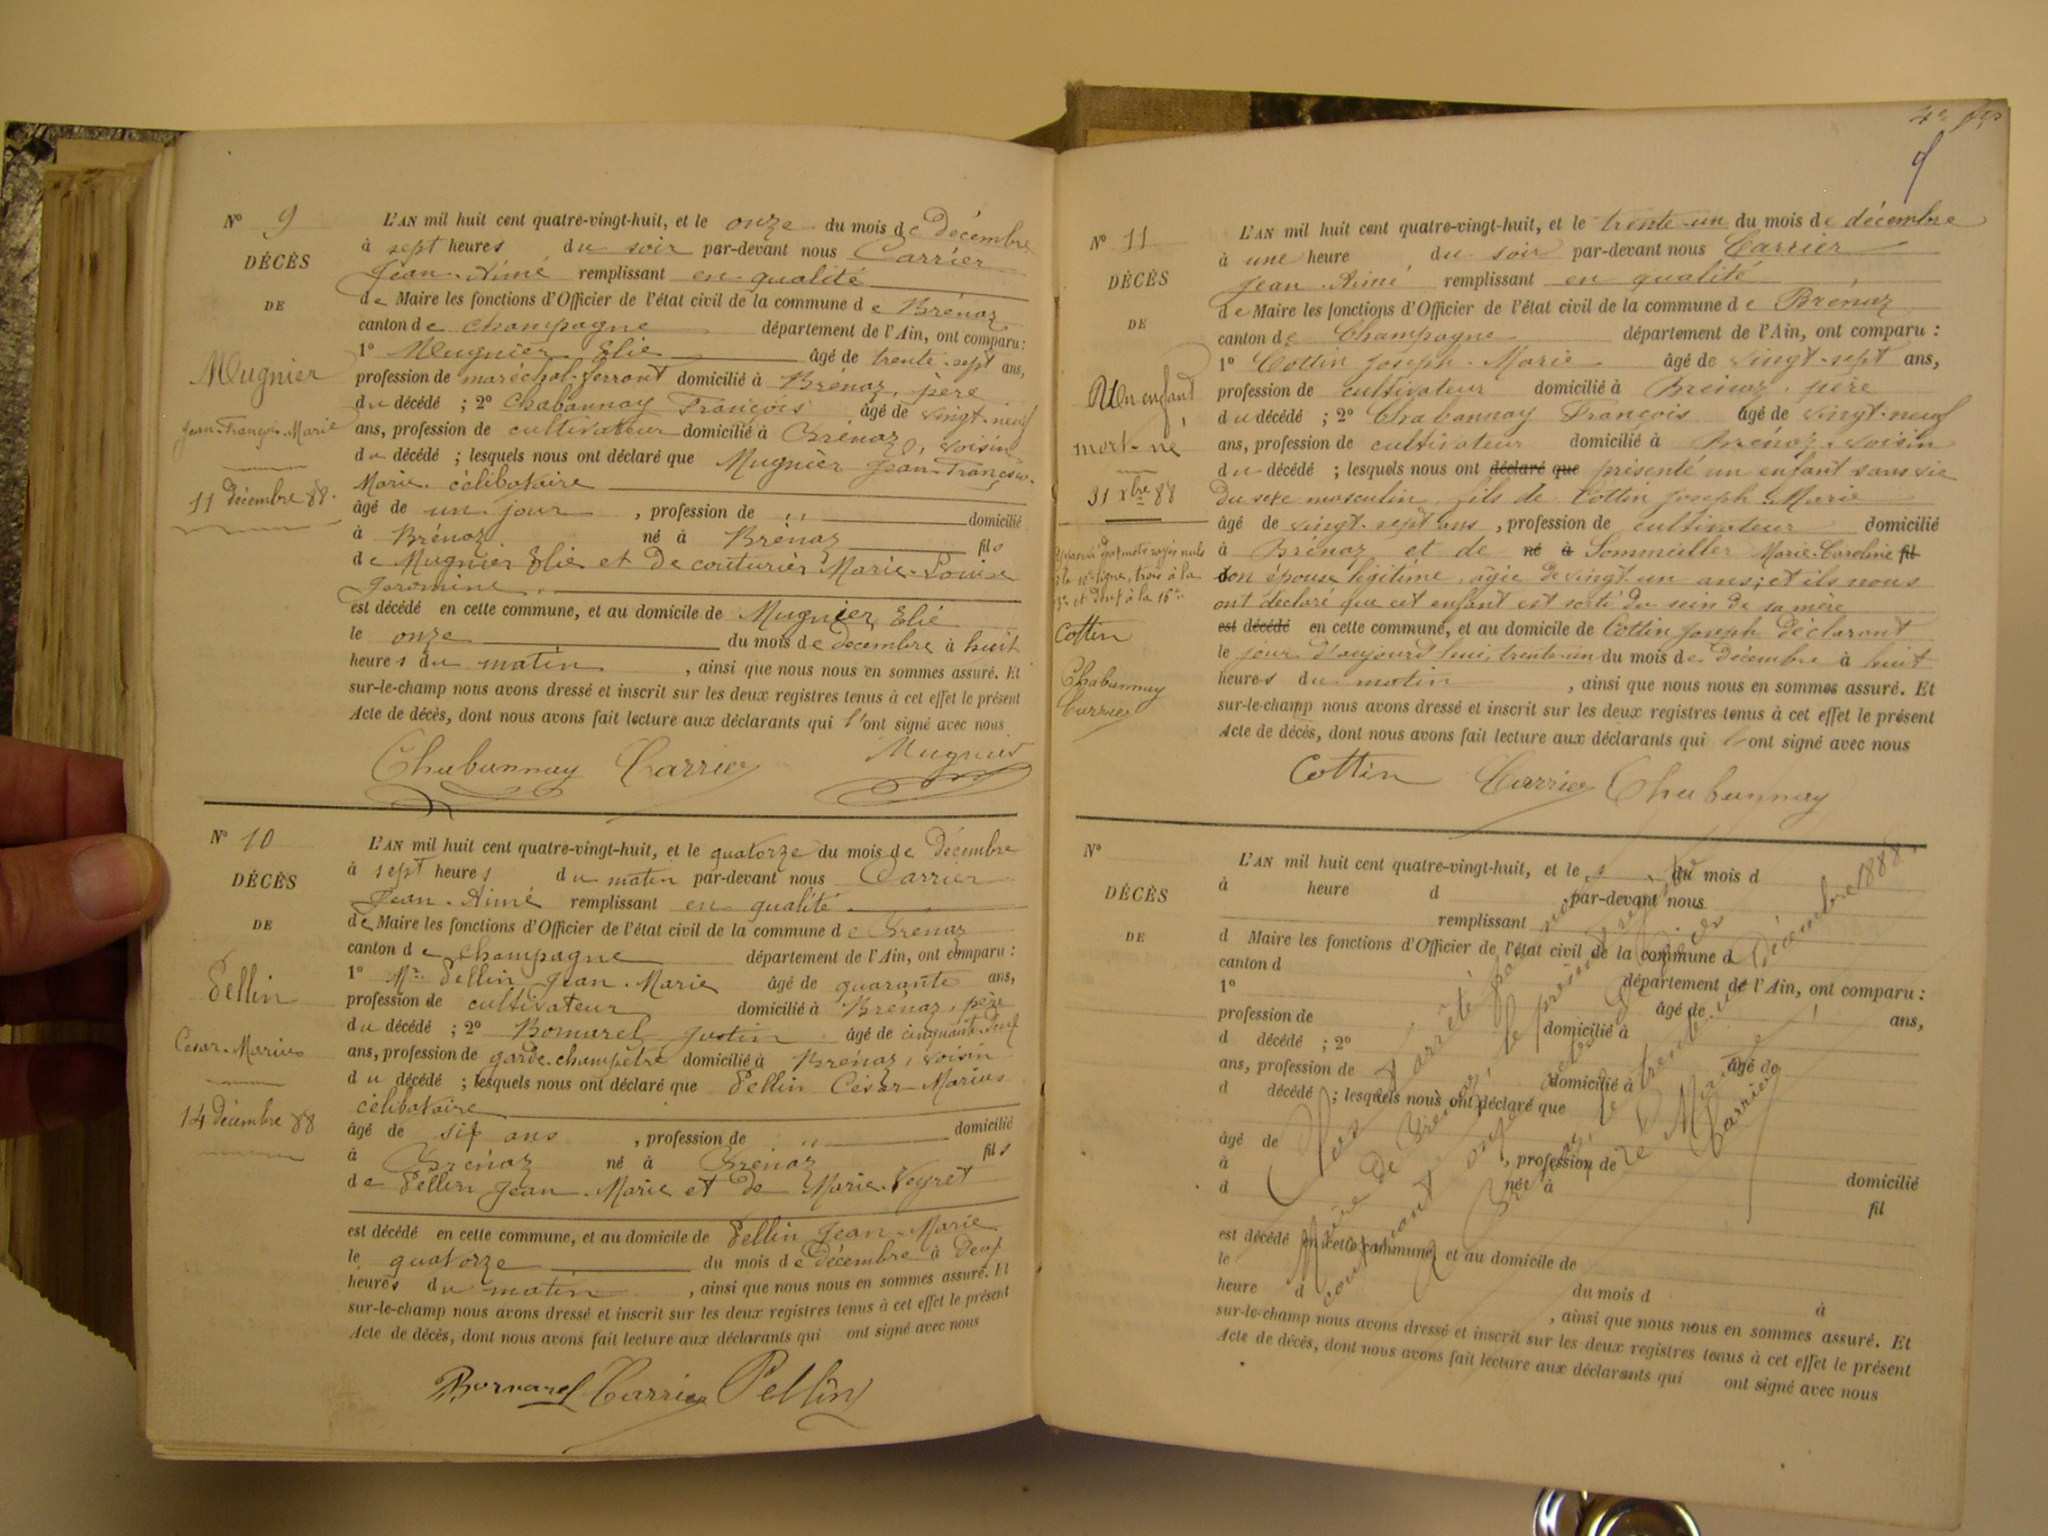 N° 9
DÉCÈS
DE
Mugnier
Jean-François-Marie
11 décembre 88.
L'AN mil huit cent quatre-vingt-huit, et le onze du mois de Décembre
à sept heures du soir par-devant nous Carrier
Jean-Aimé remplissant en qualité
de Maire les fonctions d'Officier de l'état civil de la commune de Brénaz
canton de Champagne département de l'Ain, ont comparu :
1° Mugnier Elie âgé de trente-sept ans,
profession de maréchal-ferrant domicilié à Brénaz, père
du décédé ; 2° Chabannay François âgé de vingt-neuf
ans, profession de cultivateur domicilié à Brénaz, voisin
du décédé ; lesquels nous ont déclaré que Mugnier Jean-François-
Marie célibataire
âgé de un jour , profession de ,, domicilié
à Brénaz né à Brénaz fils
de Mugnier Elie et de couturier Marie-Louise
Jeromine
est décédé en cette commune, et au domicile de Mugnier Elie
le onze du mois de décembre à huit
heures du matin , ainsi que nous nous en sommes assuré. Et
sur-le-champ nous avons dressé et inscrit sur les deux registres tenus à cet effet le présent
Acte de décès, dont nous avons fait lecture aux déclarants qui l'ont signé avec nous
Chabannay Carrier Mugnier
N° 10
DÉCÈS
DE
Pellin
César-Marius
14 décembre 88
L'AN mil huit cent quatre-vingt-huit, et le quatorze du mois de Décembre
à sept heures du matin par-devant nous Carrier
Jean-Aimé remplissant en qualité
de Maire les fonctions d'Officier de l'état civil de la commune de Brenaz
canton de Champagne département de l'Ain, ont comparu :
1° Mr Pellin Jean-Marie âgé de quarante ans,
profession de cultivateur domicilié à Brénaz, père
du décédé ; 2° Bornarel Justin âgé de cinquante-deux
ans, profession de garde-champêtre domicilié à Brénaz, voisin
du décédé ; lesquels nous ont déclaré que Pellin César-Marius
célibataire
âgé de six ans , profession de ,, domicilié
à Brénaz né à Brénaz fils
de Pellin Jean-Marie et de Marie Veyret
est décédé en cette commune, et au domicile de Pellin Jean-Marie
le quatorze du mois de décembre à deux
heures du matin , ainsi que nous nous en sommes assuré. Et
sur-le-champ nous avons dressé et inscrit sur les deux registres tenus à cet effet le présent
Acte de décès, dont nous avons fait lecture aux déclarants qui ont signé avec nous
Bornarel Carrier Pellin
N° 11
DÉCÈS
DE
Un enfant
mort-né
31 Xbre 88
Approuvé deux mots rayés nuls
à la 10e ligne, trois à la
et deux à la 16e
Cottin
Chabannay
Carrier
L'AN mil huit cent quatre-vingt-huit, et le trente-un du mois de décembre
à une heure du soir par-devant nous Carrier
Jean Aimé remplissant en qualité
de Maire les fonctions d'Officier de l'état civil de la commune de Brénaz
canton de Champagne département de l'Ain, ont comparu :
1° Cottin Joseph-Marie âgé de vingt-sept ans,
profession de cultivateur domicilié à Brénaz, père
du décédé ; 2° Chabannay François âgé de vingt-neuf
ans, profession de cultivateur domicilié à Brénaz, voisin
du décédé ; lesquels nous ont déclaré que présenté un enfant sans vie
du sexe masculin, fils de Cottin Joseph-Marie
âgé de vingt-sept ans , profession de cultivateur domicilié
à Brénaz et de né à Sommeiller Marie-Caroline fil
son épouse légitime, âgée de vingt-un ans ; et ils nous
ont déclaré que cet enfant est sorti du sein de sa mère
est décédé en cette commune, et au domicile de Cottin Joseph déclarant
le jour d'aujourd'hui, trente-un du mois de décembre à huit
heures du matin , ainsi que nous nous en sommes assuré. Et
sur-le-champ nous avons dressé et inscrit sur les deux registres tenus à cet effet le présent
Acte de décès, dont nous avons fait lecture aux déclarants qui l'ont signé avec nous
Cottin Carrier Chabannay
N°
DÉCÈS
DE
L'AN mil huit cent quatre-vingt-huit, et le du mois d
à heure d par-devant nous
remplissant
d Maire les fonctions d'Officier de l'état civil de la commune d
canton d département de l'Ain, ont comparu :
1° âgé de ans,
profession de domicilié à
d décédé ; 2° âgé de
ans, profession de domicilié à
d décédé ; lesquels nous ont déclaré que
âgé de , profession de domicilié
à né à fil
d
est décédé en cette commune, et au domicile de
le du mois d à
heure d , ainsi que nous nous en sommes assuré. Et
sur-le-champ nous avons dressé et inscrit sur les deux registres tenus à cet effet le présent
Acte de décès, dont nous avons fait lecture aux déclarants qui ont signé avec nous
Clos et arrêté par nous
Maire de Brénaz, le présent registre
contenant onze actes de décès
Brénaz, le trente-un Décembre 1888.
Le Maire
Carrier